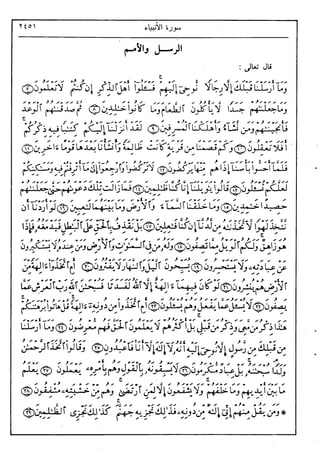 سورة الأنبياء
٢٤٥١
الرسل والأمم
قال تعالى :
وَمَآ أَرْسَلْنَا قَبْلَكَ إِلَّا رِجَالًا نُّوحِىٓ إِلَيْهِمْ فَسْـَٔلُوٓا۟ أَهْلَ ٱلذِّكْرِ إِن كُنتُمْ لَا تَعْلَمُونَ ٧
وَمَا جَعَلْنَٰهُمْ جَسَدًا لَّا يَأْكُلُونَ ٱلطَّعَامَ وَمَا كَانُوا۟ خَٰلِدِينَ ٨ ثُمَّ صَدَقْنَٰهُمُ ٱلْوَعْدَ
فَأَنجَيْنَٰهُمْ وَمَن نَّشَآءُ وَأَهْلَكْنَا ٱلْمُسْرِفِينَ ٩ لَقَدْ أَنزَلْنَآ إِلَيْكُمْ كِتَٰبًا فِيهِ ذِكْرُكُمْ
أَفَلَا تَعْقِلُونَ ١٠ وَكَمْ قَصَمْنَا مِن قَرْيَةٍ كَانَتْ ظَالِمَةً وَأَنشَأْنَا بَعْدَهَا قَوْمًا ءَاخَرِينَ ١١
فَلَمَّآ أَحَسُّوا۟ بَأْسَنَآ إِذَا هُم مِّنْهَا يَرْكُضُونَ ١٢ لَا تَرْكُضُوا۟ وَٱرْجِعُوٓا۟ إِلَىٰ مَآ أُتْرِفْتُمْ فِيهِ وَمَسَٰكِنِكُمْ
لَعَلَّكُمْ تُسْـَٔلُونَ ١٣ قَالُوا۟ يَٰوَيْلَنَآ إِنَّا كُنَّا ظَٰلِمِينَ ١٤ فَمَا زَالَت تِّلْكَ دَعْوَىٰهُمْ حَتَّىٰ جَعَلْنَٰهُمْ
حَصِيدًا خَٰمِدِينَ ١٥ وَمَا خَلَقْنَا ٱلسَّمَآءَ وَٱلْأَرْضَ وَمَا بَيْنَهُمَا لَٰعِبِينَ ١٦ لَوْ أَرَدْنَآ أَن
نَّتَّخِذَ لَهْوًا لَّٱتَّخَذْنَٰهُ مِن لَّدُنَّآ إِن كُنَّا فَٰعِلِينَ ١٧ بَلْ نَقْذِفُ بِٱلْحَقِّ عَلَى ٱلْبَٰطِلِ فَيَدْمَغُهُۥ فَإِذَا
هُوَ زَاهِقٌ وَلَكُمُ ٱلْوَيْلُ مِمَّا تَصِفُونَ ١٨ وَلَهُۥ مَن فِى ٱلسَّمَٰوَٰتِ وَٱلْأَرْضِ وَمَنْ عِندَهُۥ لَا يَسْتَكْبِرُونَ
عَنْ عِبَادَتِهِۦ وَلَا يَسْتَحْسِرُونَ ١٩ يُسَبِّحُونَ ٱلَّيْلَ وَٱلنَّهَارَ لَا يَفْتُرُونَ ٢٠ أَمِ ٱتَّخَذُوٓا۟ ءَالِهَةً مِّنَ
ٱلْأَرْضِ هُمْ يُنشِرُونَ ٢١ لَوْ كَانَ فِيهِمَآ ءَالِهَةٌ إِلَّا ٱللَّهُ لَفَسَدَتَا فَسُبْحَٰنَ ٱللَّهِ رَبِّ ٱلْعَرْشِ عَمَّا
يَصِفُونَ ٢٢ لَا يُسْـَٔلُ عَمَّا يَفْعَلُ وَهُمْ يُسْـَٔلُونَ ٢٣ أَمِ ٱتَّخَذُوا۟ مِن دُونِهِۦٓ ءَالِهَةً قُلْ هَاتُوا۟ بُرْهَٰنَكُمْ
هَٰذَا ذِكْرُ مَن مَّعِىَ وَذِكْرُ مَن قَبْلِى بَلْ أَكْثَرُهُمْ لَا يَعْلَمُونَ ٱلْحَقَّ فَهُم مُّعْرِضُونَ ٢٤ وَمَآ أَرْسَلْنَا
مِن قَبْلِكَ مِن رَّسُولٍ إِلَّا نُوحِىٓ إِلَيْهِ أَنَّهُۥ لَآ إِلَٰهَ إِلَّآ أَنَا۠ فَٱعْبُدُونِ ٢٥ وَقَالُوا۟ ٱتَّخَذَ ٱلرَّحْمَٰنُ
وَلَدًا سُبْحَٰنَهُۥ بَلْ عِبَادٌ مُّكْرَمُونَ ٢٦ لَا يَسْبِقُونَهُۥ بِٱلْقَوْلِ وَهُم بِأَمْرِهِۦ يَعْمَلُونَ ٢٧ يَعْلَمُ
مَا بَيْنَ أَيْدِيهِمْ وَمَا خَلْفَهُمْ وَلَا يَشْفَعُونَ إِلَّا لِمَنِ ٱرْتَضَىٰ وَهُم مِّنْ خَشْيَتِهِۦ مُشْفِقُونَ ٢٨
* وَمَن يَقُلْ مِنْهُمْ إِنِّىٓ إِلَٰهٌ مِّن دُونِهِۦ فَذَٰلِكَ نَجْزِيهِ جَهَنَّمَ كَذَٰلِكَ نَجْزِى ٱلظَّٰلِمِينَ ٢٩